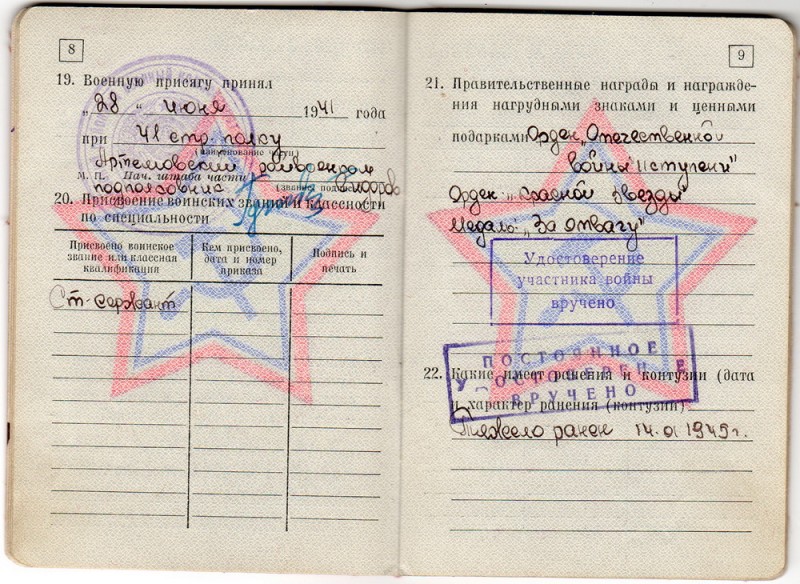 8
19. Военную присягу принял
„28“ июня 1941 года
при 41 стр. полку
(наименование части)
Артемовский райвоенком
М. П. Нач. штаба части
подполковник
20. Присвоение воинских званий и классности
по специальности
Присвоено воинское
звание или классная
квалификация
Кем присвоено,
дата и номер
приказа
Подпись и
печать
Ст-сержант
9
21. Правительственные награды и награжде-
ния нагрудными знаками и ценными
подарками Орден „Отечественной
войны II ступени"
Орден „Красной Звезды"
Медаль: „За отвагу"
Удостоверение
участника войны
вручено
ПОСТОЯННОЕ
УДОСТОВЕРЕНИЕ
ВРУЧЕНО
22. Какие имеет ранения и контузии (дата
и характер ранения (контузии)
Тяжело ранен